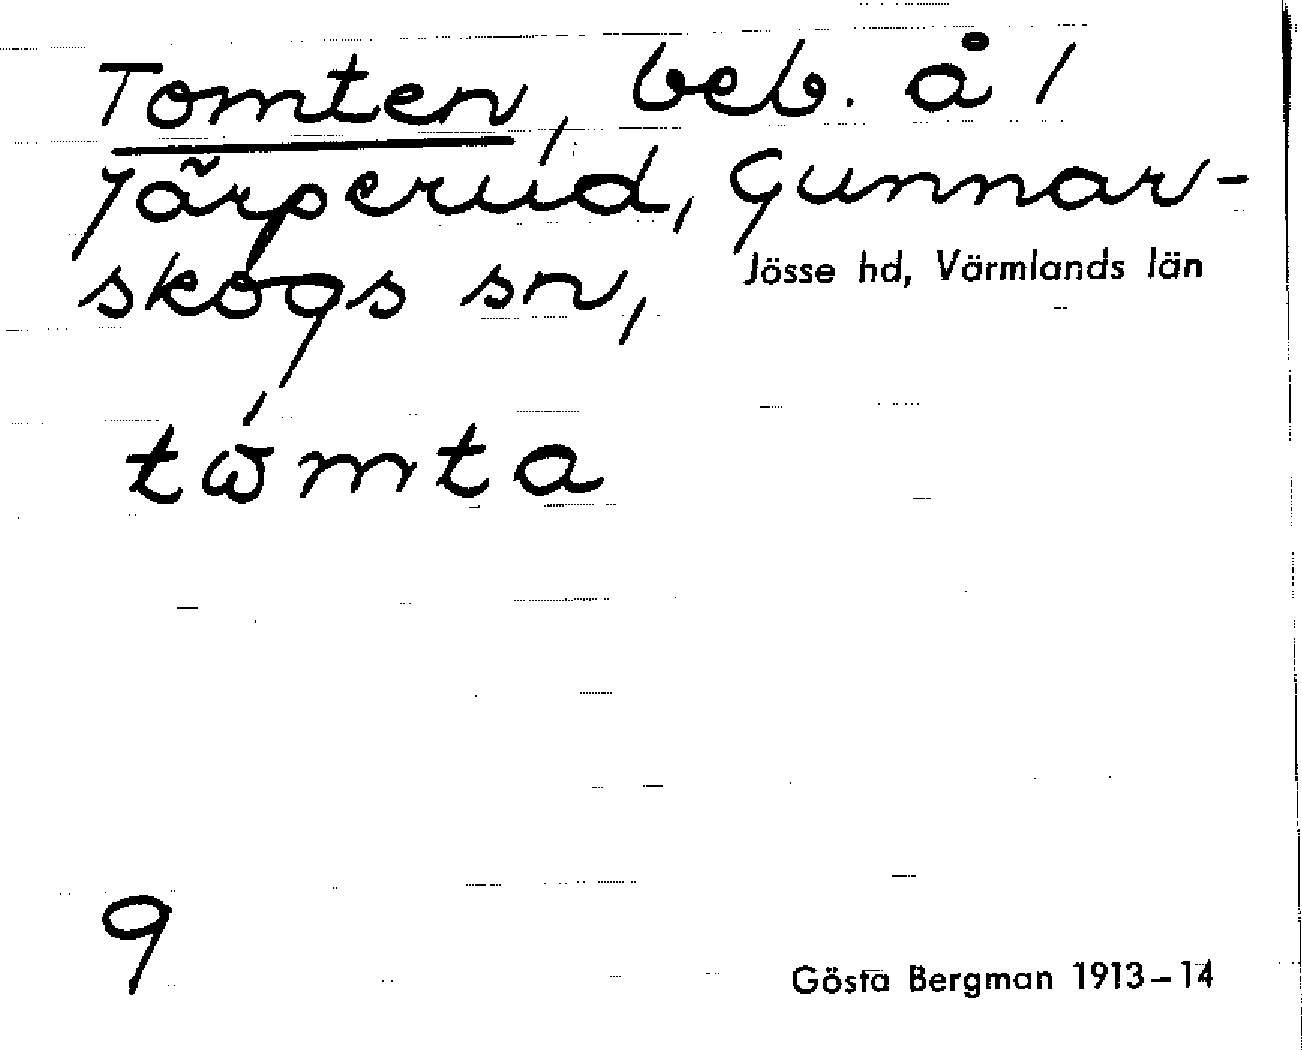 Tomten, beb. å 1
Järperud, Gunnar-
skogs sn, Jösse hd, Värmlands län
tω̄́mta
9
Gösta Bergman 1913–14